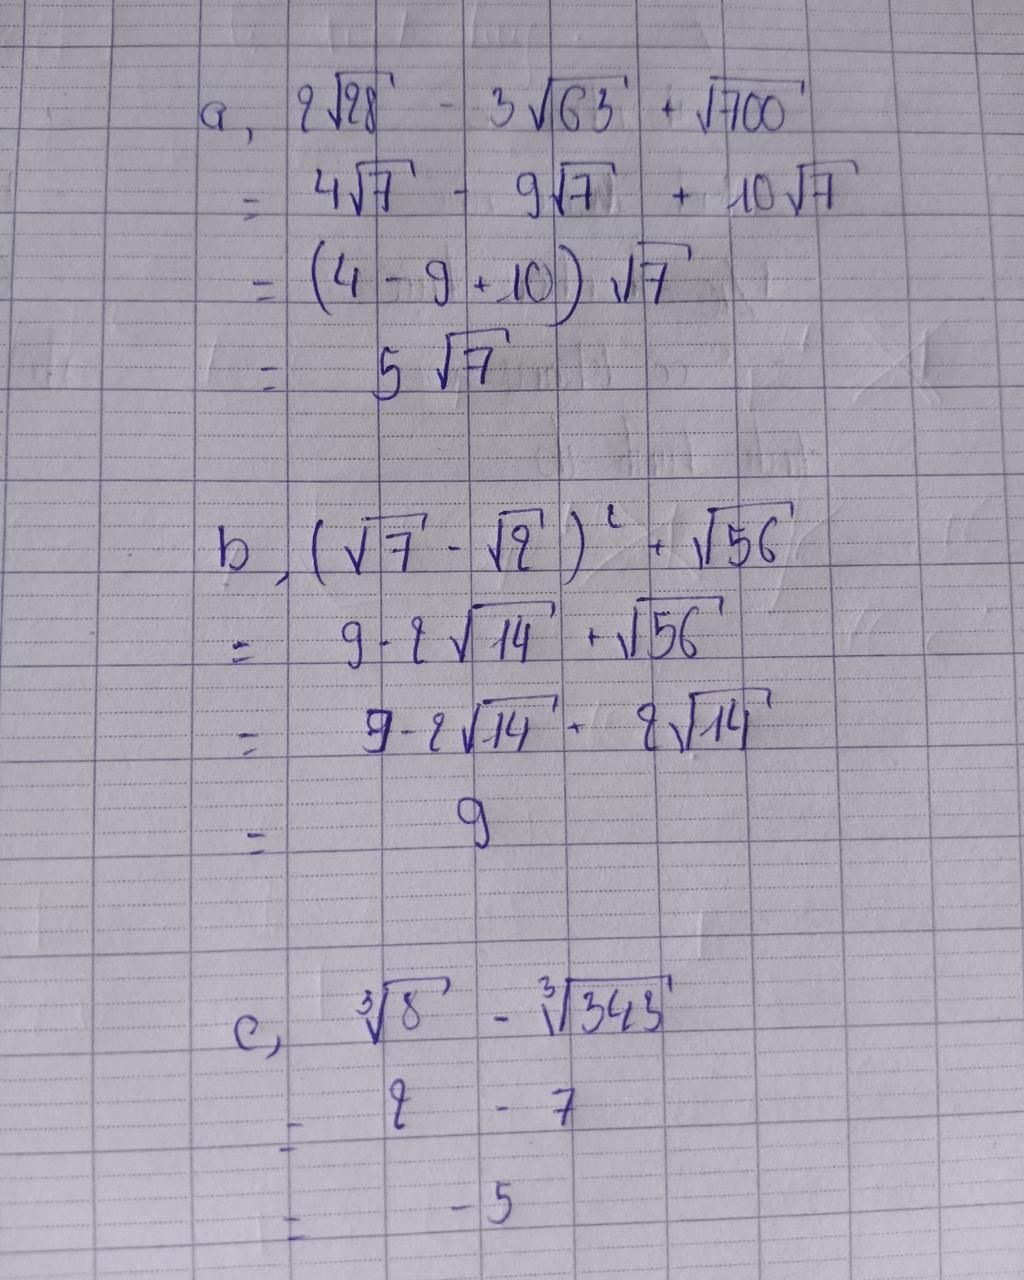 a, 2√28 - 3√63 + √700
= 4√7 - 9√7 + 10√7
= (4 - 9 + 10) √7
= 5 √7
b, (√7 - √2)² + √56
= 9 - 2√14 + √56
= 9 - 2√14 + 2√14
= 9
c, ∛8 - ∛343
= 2 - 7
= - 5